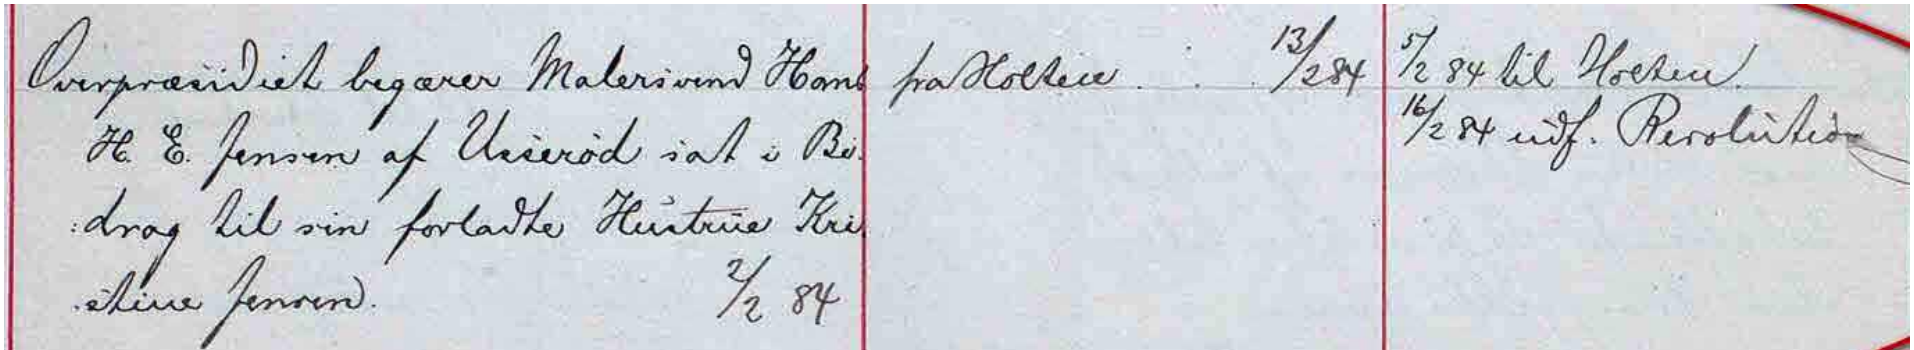 Overpræsidiet begærer Malersvend Hans
H. E. Jensen af Usserød sat i Bi-
drag til sin forladte Hustrue Kri-
stine Jensen. 2/2 84
fra Holten . . . 13/2 84
5/2 84 til Holten.
16/2 84 udf. Resolution